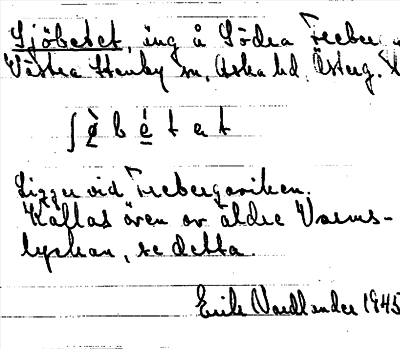 Sjöbetet, äng å Södra Freberga
Västra Stenby sn, Aska hd, Österg.
ʃ ø̀ b é t a t
Ligger vid Frebergaviken.
Kallas även av äldre Varms-
lyckan, se detta.
Erik Nordlander 1945